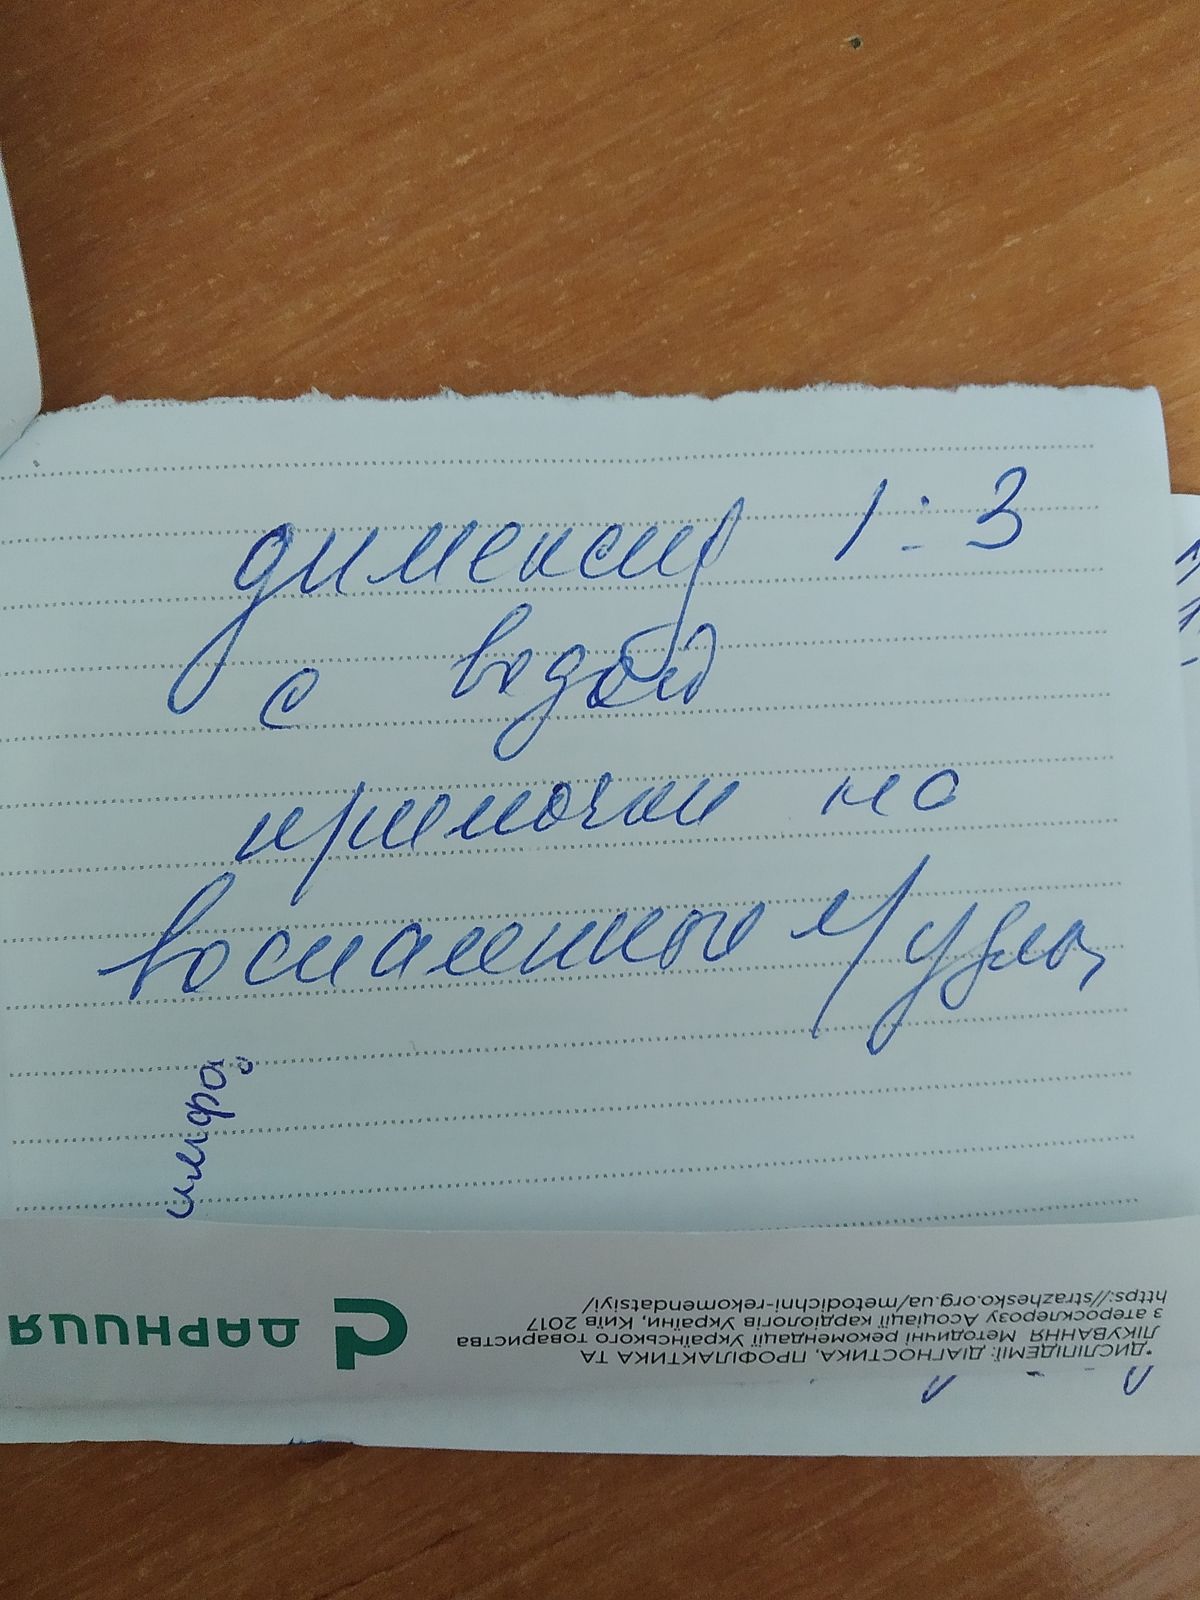 димексид 1:3
с водой
примочки на
воспаленные л/узлы
лимфо
ДАРНИЦЯ
*ДИСЛІПІДЕМІЇ: ДІАГНОСТИКА, ПРОФІЛАКТИКА ТА
ЛІКУВАННЯ Методичні рекомендації Українського товариства
з атеросклерозу Асоціації кардіологів України, Київ 2017
https://strazhesko.org.ua/metodichni-rekomendatsiyi/